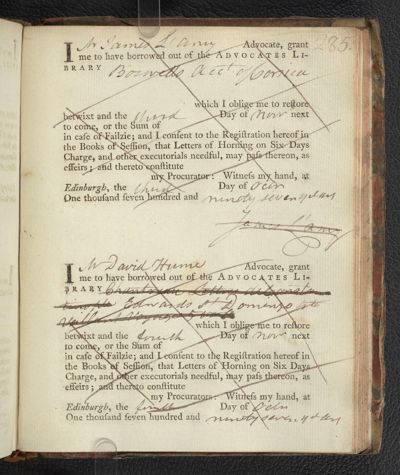 285.
I Mr James L'amy Advocate, grant
me to have borrowed out of the ADVOCATES LI-
BRARY Boswells Acct of Corsica
which I oblige me to reſtore
betwixt and the third Day of Novr next
to come, or the Sum of
in caſe of Failzie; and I conſent to the Regiſtration hereof in
the Books of Seſſion, that Letters of Horning on Six Days
Charge, and other executorials needful, may paſs thereon, as
effeirs; and thereto conſtitute
my Procurator: Witneſs my hand, at
Edinburgh, the third Day of Decr
One thouſand ſeven hundred and ninety seven years
James L'amy
I Mr David Hume Advocate, grant
me to have borrowed out of the ADVOCATES LI-
BRARY
Edwards St Domingo 4to
which I oblige me to reſtore
betwixt and the fourth Day of Novr next
to come, or the Sum of
in caſe of Failzie; and I conſent to the Regiſtration hereof in
the Books of Seſſion, that Letters of Horning on Six Days
Charge, and other executorials needful, may paſs thereon, as
effeirs; and thereto conſtitute
my Procurator: Witneſs my hand, at
Edinburgh, the fourth Day of Decr
One thouſand ſeven hundred and ninety seven years